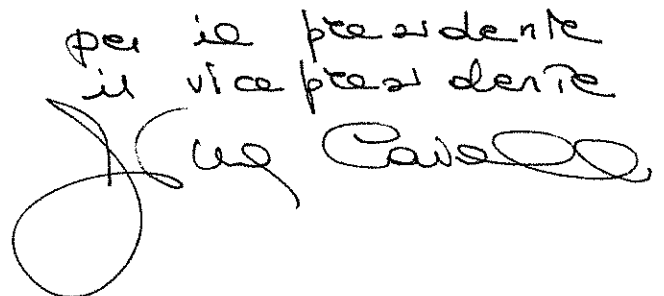 per il presidente
il vicepresidente